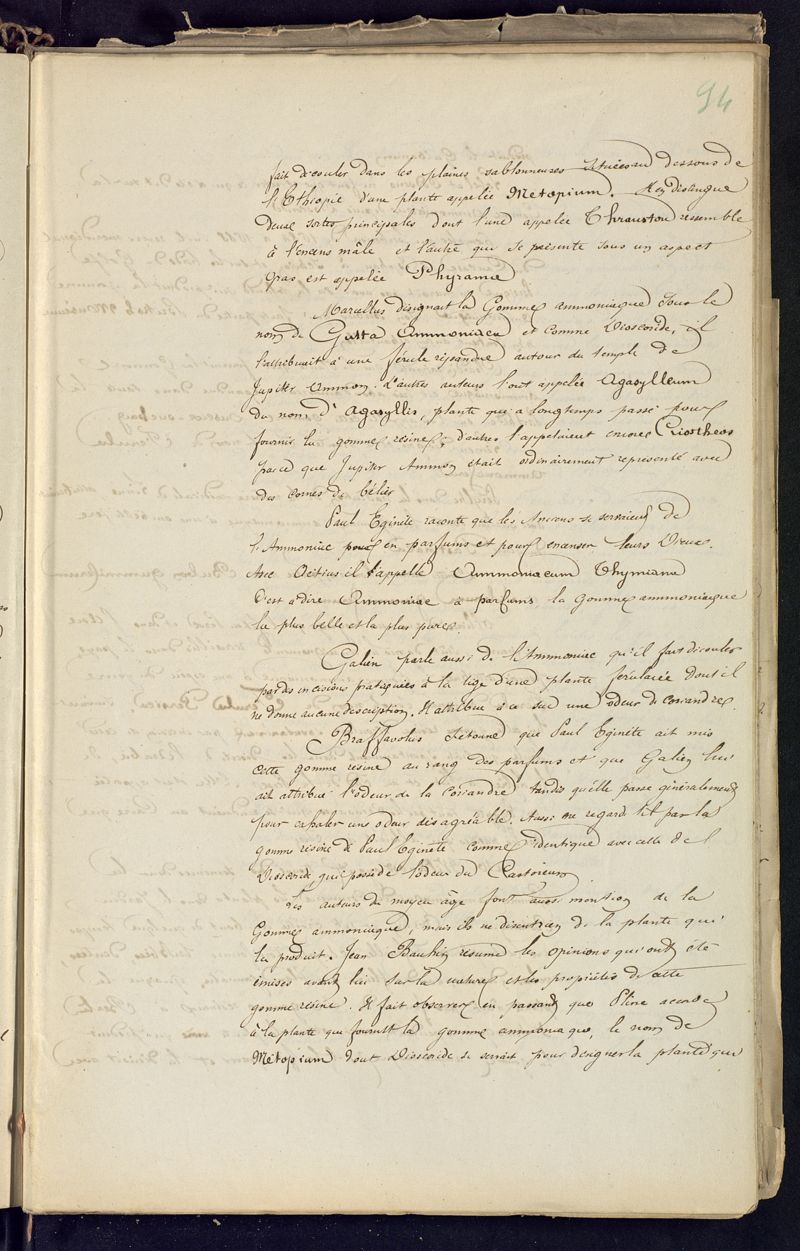 94
fait découler dans les plaines sablonneuses situées au dessous de
l'Ethiopie d'une plante appelée Metopium. Il en distingue
deux sortes principales dont l'une appelée Thrauston ressemble
à l'encens mâle et l'autre qui se présente sous un aspect
gras est appelée Phyrama
Marcellus désignait la Gomme ammoniaque sous le
nom de Gutta Ammoniaca et comme Dioscoride, il
l'attribuait à une férule répandue autour du temple de
Jupiter Ammon. D'autres auteurs l'ont appelée Agasylleum
du nom d'Agasyllis, plante qui a longtemps passé pour
fournir la gomme résine; d'autres l'appelaient encore Criotheos
parce que Jupiter Ammon était ordinairement représenté avec
des cornes de bélier
Paul Eginète raconte que les Anciens se servaient de
l'Ammoniac pour en parfums et pour encenser leurs Dieux.
Avec Oetius il l'appelle Ammoniacum Thymiama
C'est à dire Ammoniac à parfums la Gomme ammoniaque
la plus belle et la plus pure.
Galien parle aussi de l'Ammoniac qu'il fait découler
par des incisions pratiquées à la tige d'une plante férulacée dont il
ne donne aucune description. Il attribue à ce suc une odeur de coriandre.
Braffavolus s'étonne que Paul Eginète ait mis
cette gomme résine au rang des parfums et que Galien lui
ait attribué l'odeur de la coriandre tandis qu'elle passe généralement
pour exhaler une odeur désagréable. Aussi ne regarde t il pas la
gomme résine de Paul Eginète comme identique avec celle de
Dioscoride qui possède l'odeur du Castoreum
Les auteurs du moyen âge font aussi mention de la
Gomme ammoniaque, mais ils ne disent rien de la plante qui
la produit. Jean Bauhin résume les opinions qui ont été
émises avant lui sur la nature et les propriétés de cette
gomme résine. Il fait observer en passant que Pline accorde
à la plante qui fournit la gomme ammoniaque, le nom de
Métopium dont Dioscoride se servait pour désigner la plante qui